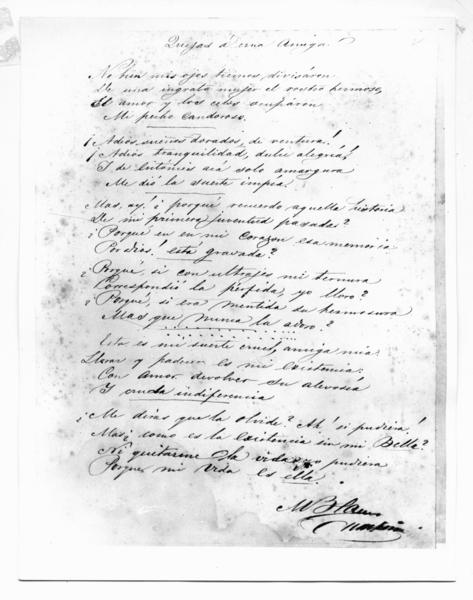 Quejas á una Amiga.
No bien mis ojos tiernos, divisáron
De una ingrata mujer el rostro hermoso,
El amor y los celos ocupáron
Mi pecho candoroso.
¡Adios, sueños dorados, de ventura!
¡Adios tranquilidad, dulce alegria!
I de entónces acá solo amargura
Me dió la suerte impía.
Mas, ay! ¿porque recuerdo aquella historia
De mi primera juventud pasada?
¿Porque en en mi corazon esa memoria
Por dios! está gravada?
¿Porque, si con ultrajes mi ternura
Correspondió la pérfida, yo lloro?
¿Porque, si era mentida su hermosura
Mas que nunca la adoro?
Esta es mi suerte cruel, amiga mia:
Llorar y padecer es mi existencia:
Con amor devolver su alevosía
I cruda indiferencia
¿Me diras que la olvide? Ah! si pudiera!
Mas ¿como es la existencia sin mi Bella?
Ni quitarme la vida yo pudiera
Porque mi vida es ella.